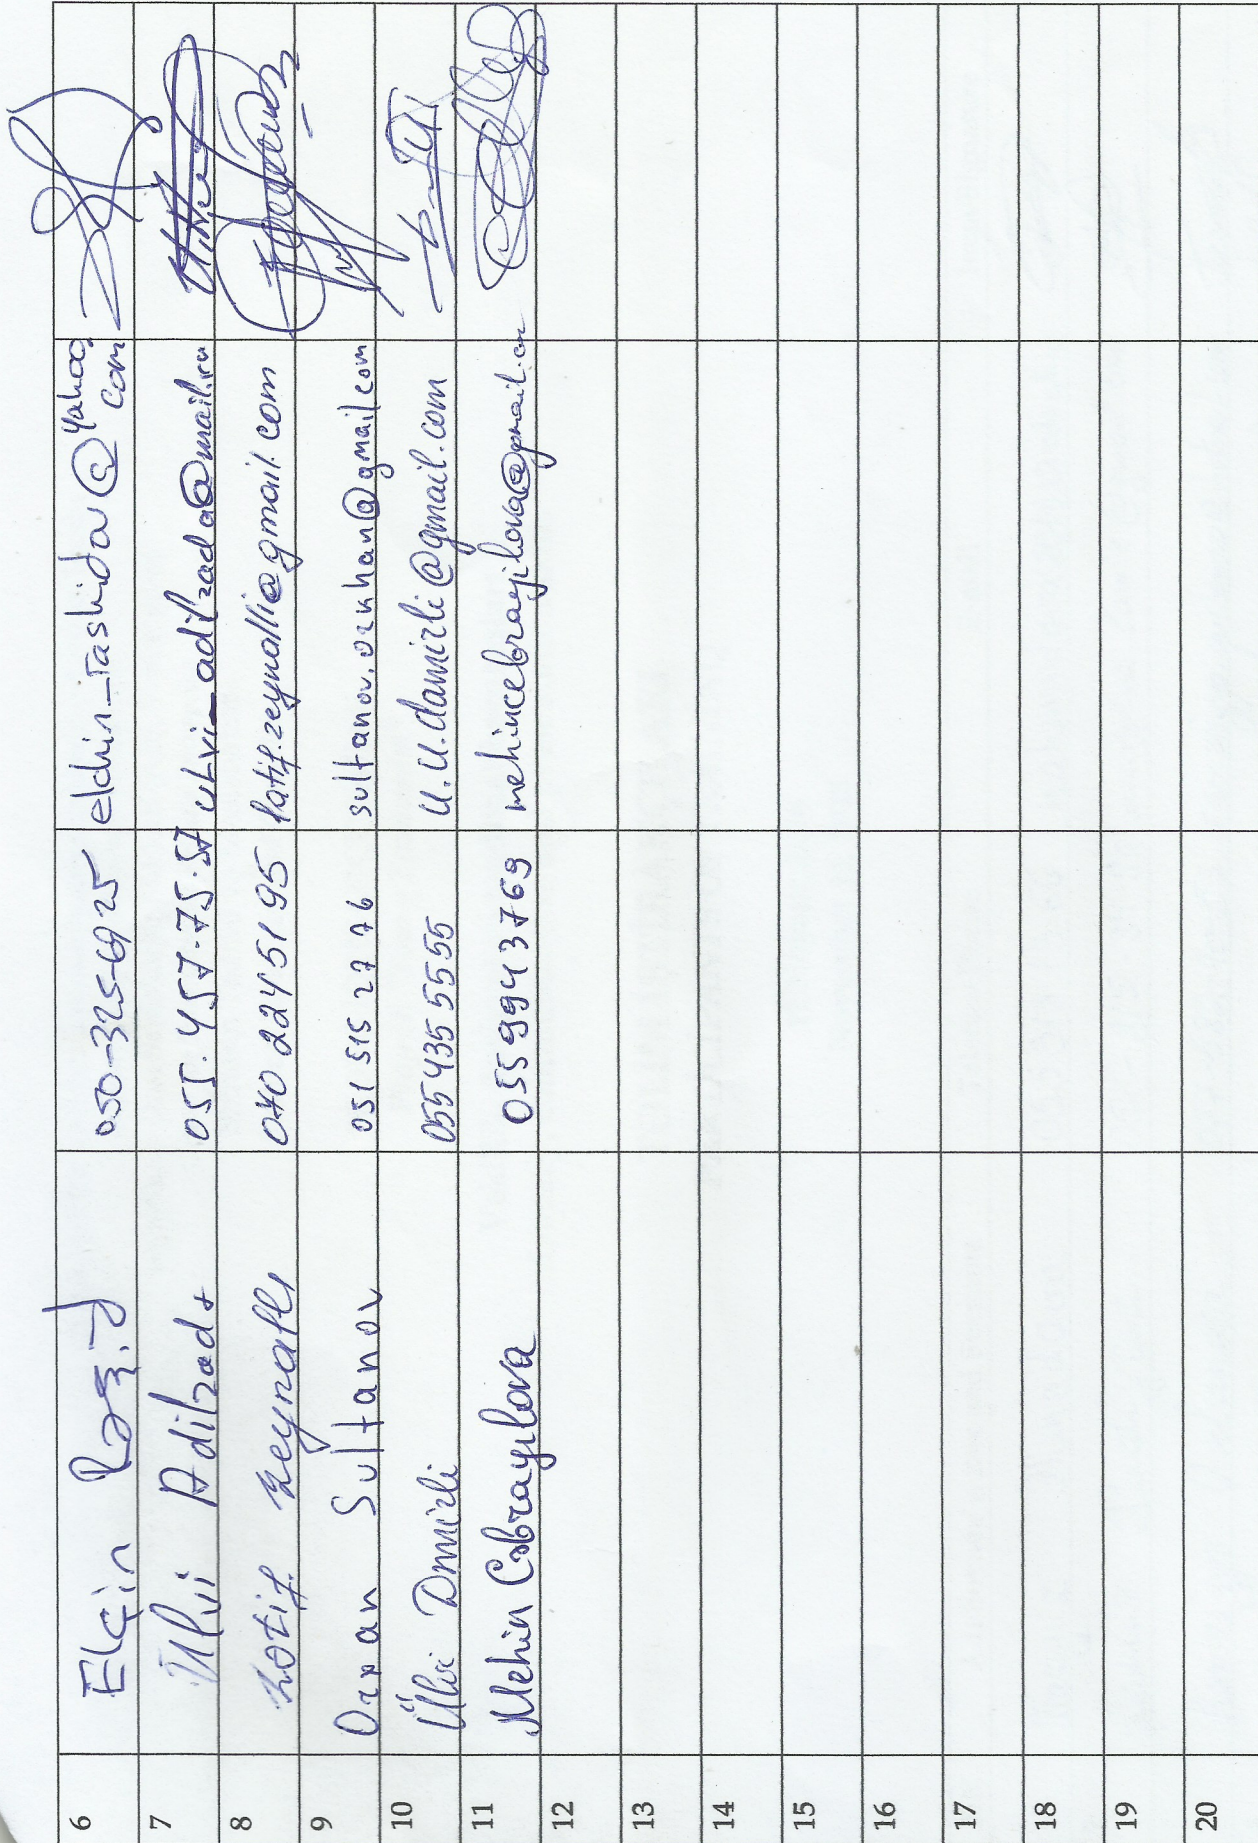 6 Elçin Rəşid 050-325-69 25 elchin_rashidov@yahoo.com
7 Ülvi Adilzadə 055.457.75.57 ulvi_adilzada@mail.ru
8 Lətif Zeynallı 070 2245195 latif.zeynalli@gmail.com
9 Orxan Sultanov 051 515 27 76 sultanov.orkhan@gmail.com
10 Ülvi Dəmirli 055 435 5555 u.u.damirli@gmail.com
11 Mehin Cəbrayılova 055 994 37 69 mehincebrayilova@gmail.com
12
13
14
15
16
17
18
19
20